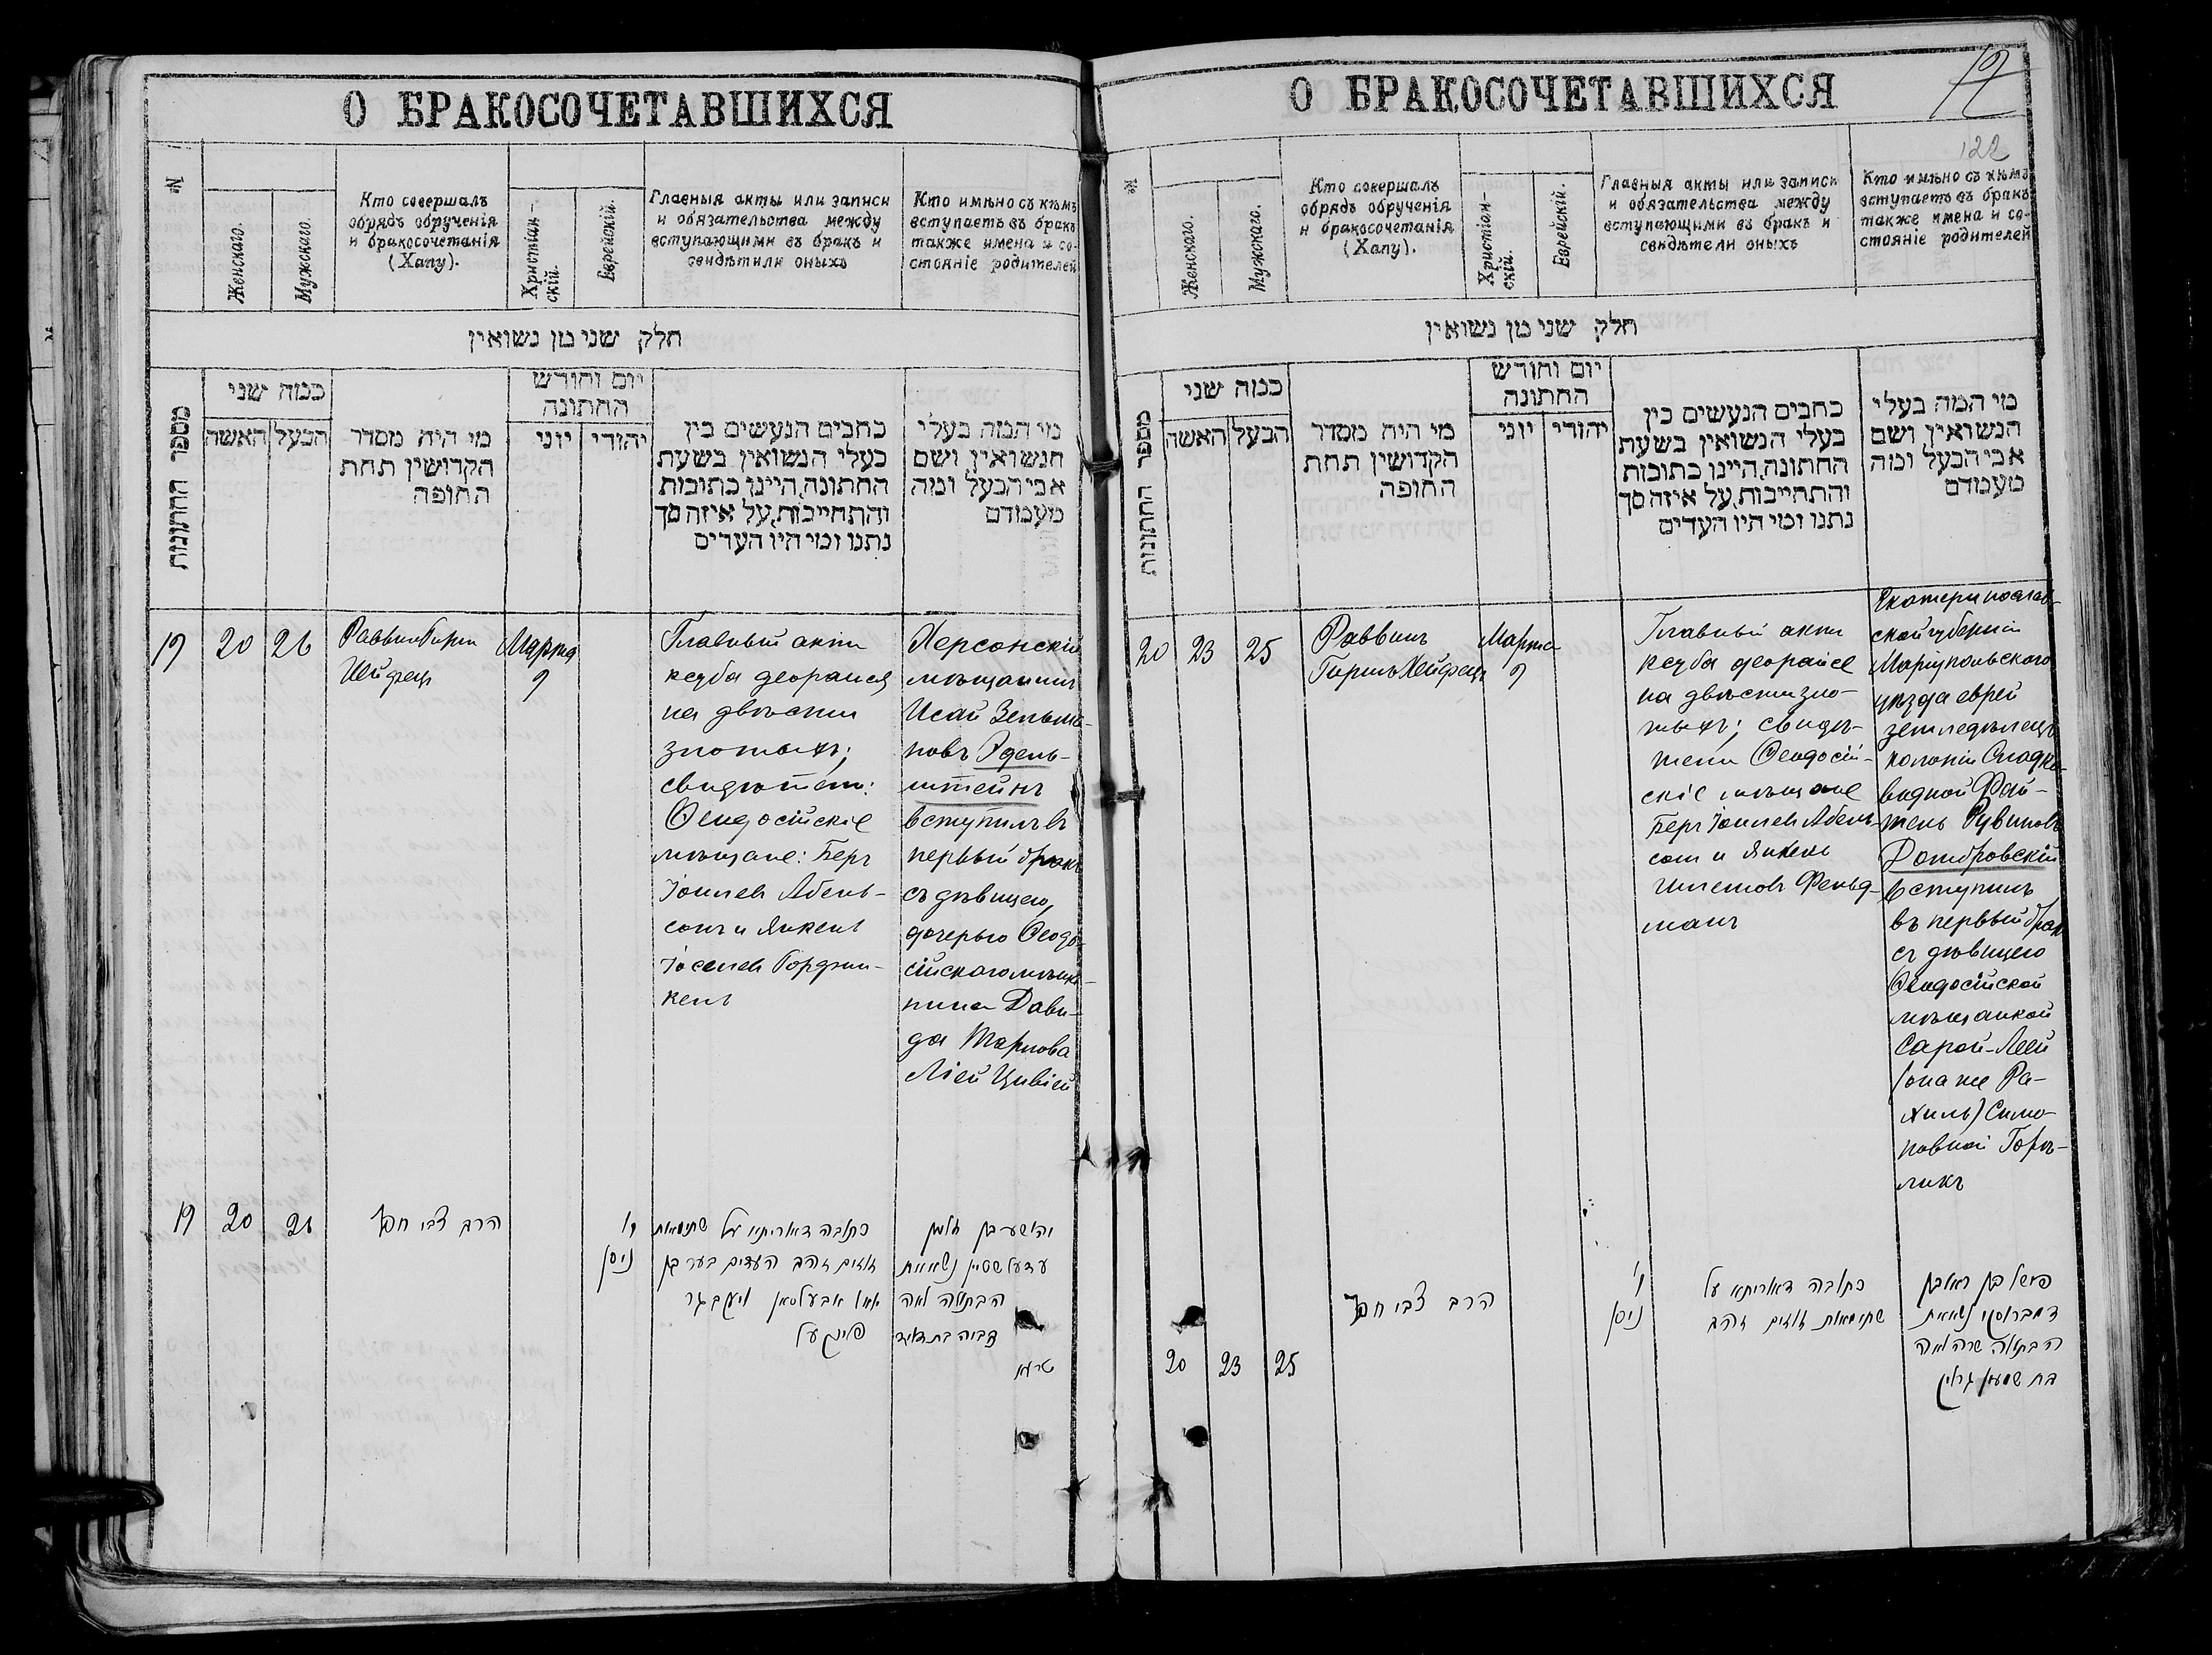 О БРАКОСОЧЕТАВШИХСЯ
№
Женскаго.
Мужскаго.
Кто совершалъ
обрядъ обрученія
и бракосочетанія
(Хапу).
Христіан-
скій.
Еврейскій.
Главныя акты или записи
и обязательства между
вступающими въ бракъ и
свидѣтили оныхъ
Кто имѣно съ кѣмъ
вступаетъ въ бракъ
также имена и со-
стояніе родителей
חלק שני מן נשואין
מספר החתונות
כמה שני
האשה
הבעל
מי היה מסדר
הקדושין תחת
החופה
יום וחודש
החתונה
יוני
יהודי
כתבים הנעשים בין
בעלי הנשואין בשעת
החתונה, היינו כתובות
והתחייבות, על איזה סך
נתנו ומי היו העדים
מי המה בעלי
הנשואין, ושם
אבי הבעל ומה
מעמדם
19
20
26
Раввинъ Гирш
Хейфецъ
Марта
9
Главный актъ
ксуба деорайся
на двѣсти
злотыхъ;
свидѣтели:
Ѳеодосійскіе
мѣщане: Беръ
Іоилевъ Абель-
сонъ и Янкель
Іоселевъ
Херсонскій
мѣщанинъ
Исай
новъ Эдель-
штейнъ
вступилъ въ
первый бракъ
съ дѣвицею,
дочерью Ѳеодо-
сійскаго мѣща-
нина Дави-
да
Ліей Цивіей
19
20
26
הרב צבי חפץ
ו'
ניסן
כתובה דאוריתא על שתי מאות
זוזים זהב העדים בער בן
יואל אבעלסאן ויעקב
יהושע בן זלמן
עדעלשטיין נשא את
הבתולה לאה
צביה בת דוד
О БРАКОСОЧЕТАВШИХСЯ
12
122
№
Женскаго.
Мужскаго.
Кто совершалъ
обрядъ обрученія
и бракосочетанія
(Хапу).
Христіан-
скій.
Еврейскій.
Главныя акты или записи
и обязательства между
вступающими въ бракъ и
свидѣтели оныхъ
Кто имѣно съ кѣмъ
вступаетъ въ бракъ
также имена и со-
стояніе родителей
חלק שני מן נשואין
מספר החתונות
כמה שני
האשה
הבעל
מי היה מסדר
הקדושין תחת
החופה
יום וחודש
החתונה
יוני
יהודי
כתבים הנעשים בין
בעלי הנשואין בשעת
החתונה, היינו כתובות
והתחייבות, על איזה סך
נתנו ומי היו העדים
מי המה בעלי
הנשואין, ושם
אבי הבעל ומה
מעמדם
20
23
25
Раввинъ
Гиршъ Хейфецъ
Марта
9
Главный актъ
ксуба деорайсе
на двѣсти зло-
тыхъ; свидѣ-
тели Ѳеодосій-
скіе мѣщане
Беръ Іоилевъ Абель-
сонъ и Янкель
Фельд-
манъ
Екатеринослав-
ской губерніи
Маріупольскаго
уѣзда еврей
земледѣлецъ
колоніи Сладко-
водной Фай-
тель Рувиновъ
Домбровскій
вступилъ
въ первый бракъ
съ дѣвицею
Ѳеодосійской
мѣщанкой
Сарой-Леей
(она же Ра-
хиль) Симо-
новной Горѣ-
ликъ
20
23
25
הרב צבי חפץ
ו'
ניסן
כתובה דאוריתא על
שתי מאות זוזים זהב
בן ראובן
דאמבראווסקי נשא את
הבתולה שרה לאה
בת שמעון